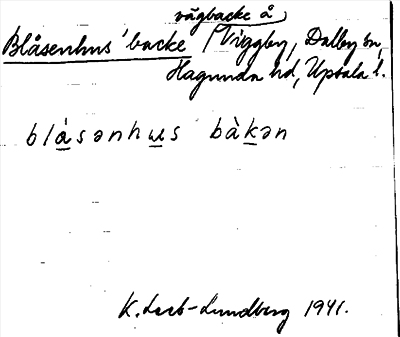 vägbacke å
Blåsenhus'backe / Viggby, Dalby sn,
Hagunda hd, Upsala l.
blåsənhus bàkən
K. Leeb-Lundberg 1941.